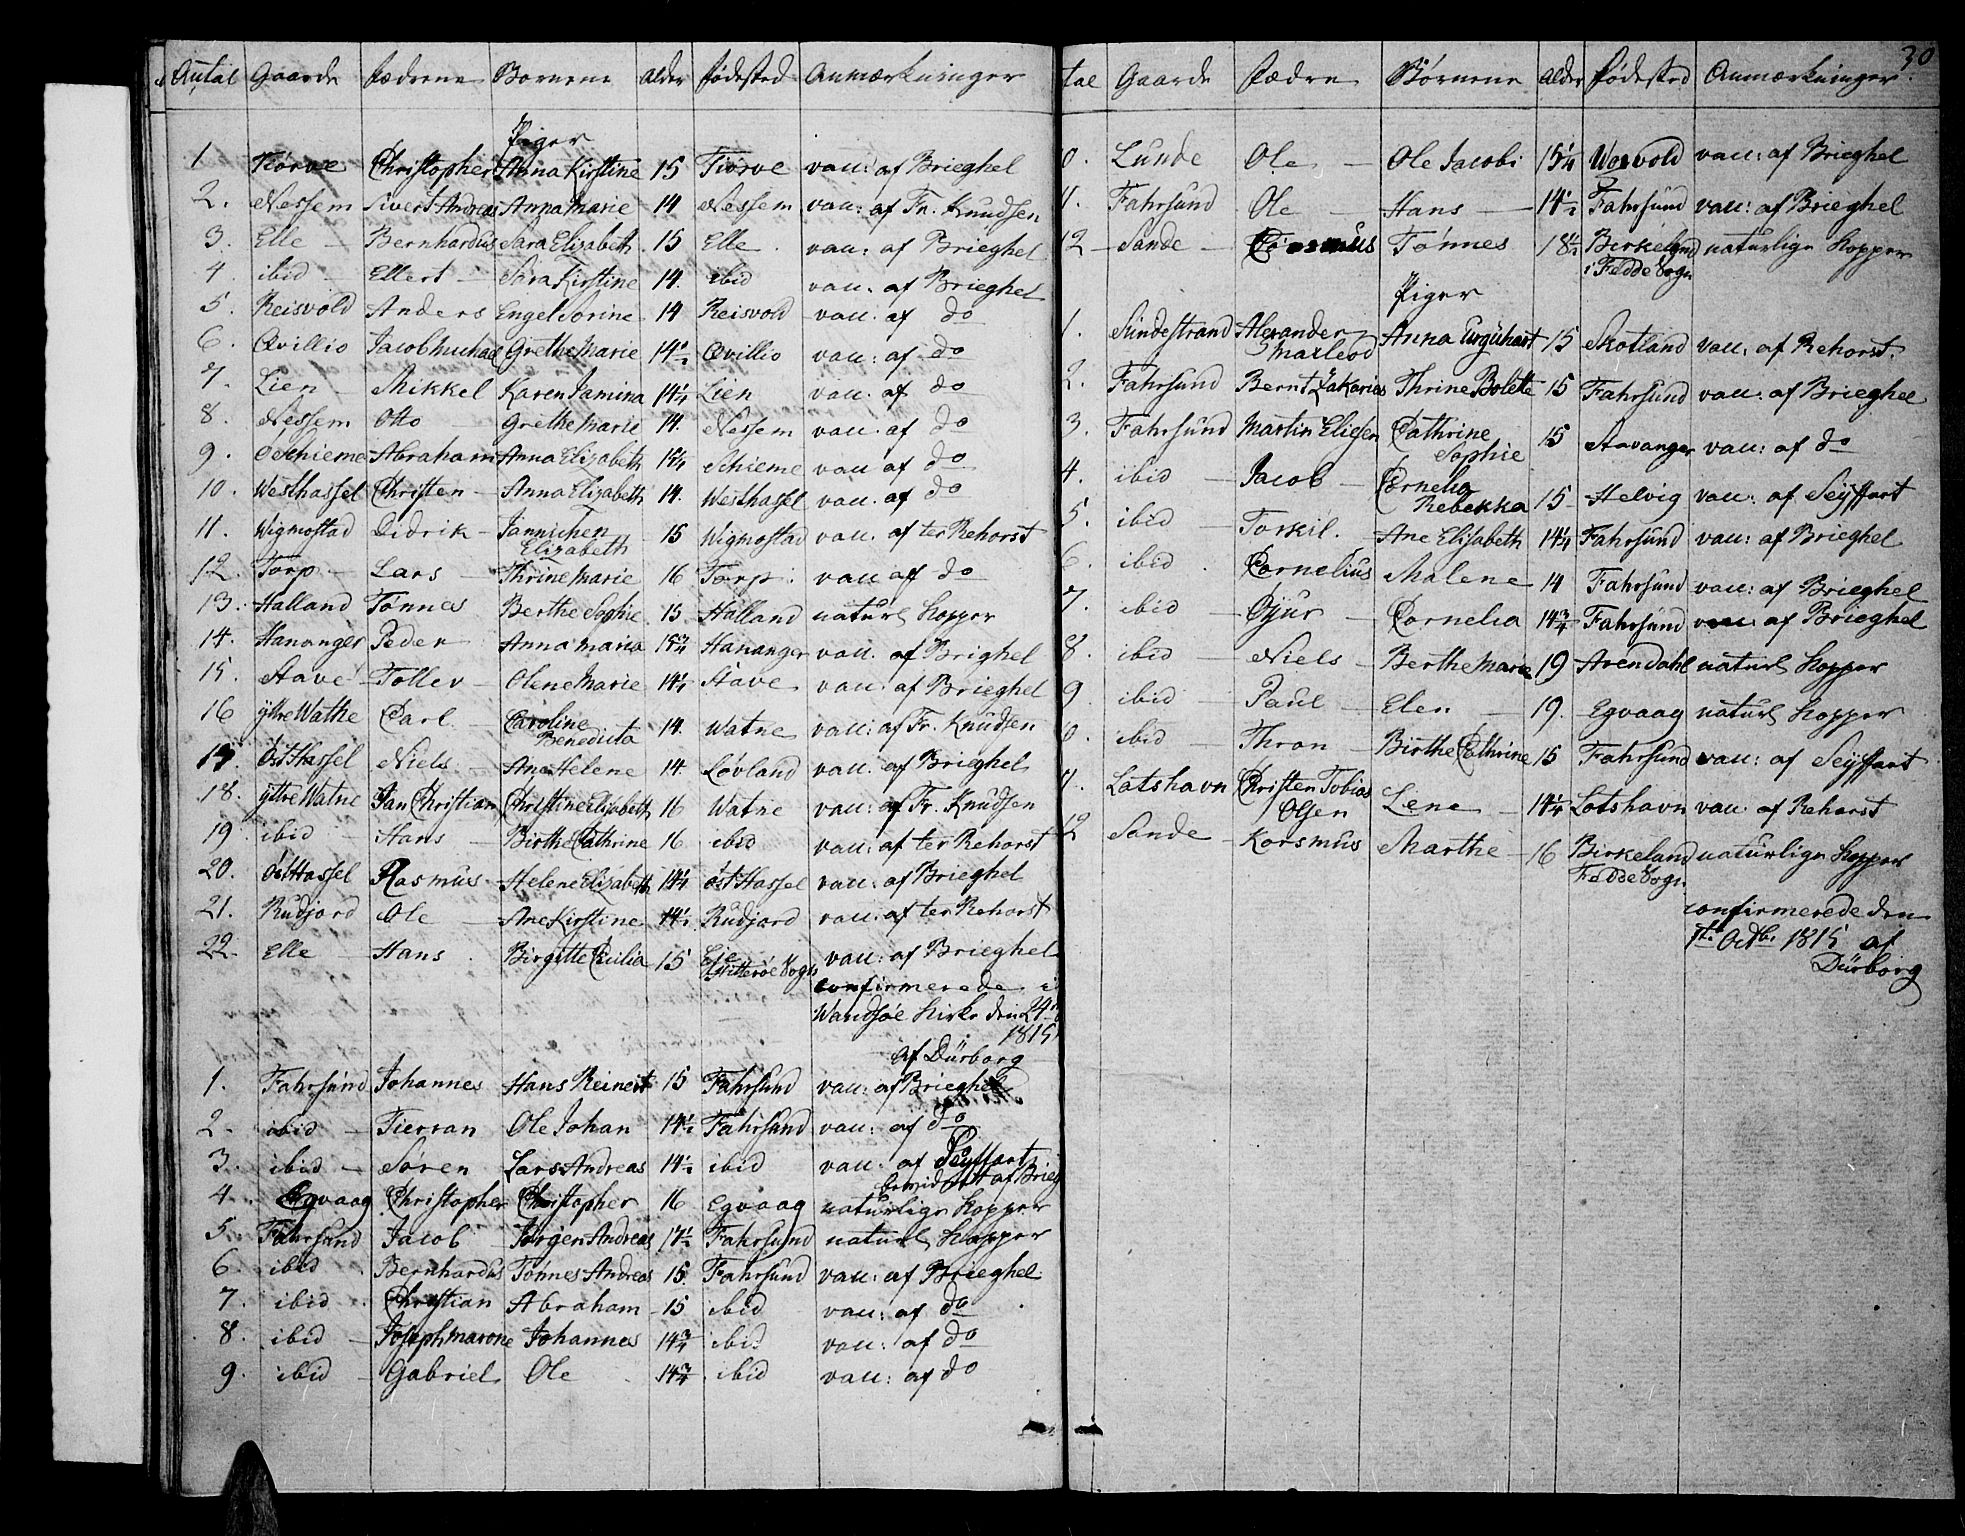 Antal Gaarde Fædrene Børnene Alder Fødested Anmærkninger
Piger
1 Tiørve Christopher Anna Kirstine 15 Tiørve vac: af Brieghel
2. Nessem Sivert Andreas Anna Marie 14 Nessem vac: af Fr. Knudsen
3. Elle Bernhardus Sara Elizabeth 15 Elle vac: af Brieghel
4 ibid Ellert Sara Kirstine 14. ibid vac: af Brieghel
5. Reisvold Anders Engel Sorine 14 Reisvold vac: af do
6. Qvillio Jacob Michael Grethe Marie 14 1/2 Qvillio vac: af do
7. Lien Mikkel Karen Jamina 14 1/4 Lien vac: af do
8. Nessem Otto Grethe Marie 14. Nessem vac: af do
9. Schieme Abraham Anna Elizabeth Schieme vac af do
10. Westhassel Christen Anna Elizabeth 14. Westhassel vac: af do
11. Wigmostad Didrik Jannichen
Elizabeth 15 Wigmostad vac: af ter Rehorst
12. Torp Lars Thrine Marie 16 Torp vac af do
13. Halland Tønnes Berthe Sophie 15. Halland naturl Kopper
14. Hananger Peder Anna Maria 15 3/4 Hananger vac: af Brighel
15. Stave Tollev Olene Marie 14 1/4 Stave vac: af Brieghel
16 ÿttre Wathe Carl Caroline
Benedicta 14. Watne vac: af Fr. Knudsen
17. Øst Hassel Niels Ane Helene 14. Løvland vac: af Brieghel
18. ÿttre Watne Jan Christian Christine Elizabeth 16 Watne vac: af Fr. Knudsen
19. ibid Hans Birthe Cathrine 16 ibid vac: af ter Rehorst
20. Øst Hassel Rasmus Helene Elizabeth 14 1/4 Øst Hassel vac: af Brieghel
21. Rudjord Ole Ane Kirstine 14 1/2 Rudjord vac: af ter Rehorst
22. Elle Hans Birgitte Cicilia 15 Eie
Hitterøe Sogn vac: af Brieghel
confirmerede i
Wandsøe Kirke den 24
1815
af Dürborg
1. Fahrsund Johannes Hans Reinert 15 Fahrsund vac: af Brieghel
2. ibid Tierran Ole Johan 14 1/2 Fahrsund vac: af do
3. ibid Søren Lars Andreas 14 1/2 ibid vac: af Seyffart
Attest af Brieg
4 Egvaag Christopher Christopher 16 Egvaag naturlige Kopper
5. Fahrsund Jacob Jørgen Andreas 17 1/2 Fahrsund naturl Kopper
6. ibid Bernhardus Tønnes Andreas 15. Fahrsund vac: af Brieghel
7. ibid Christian Abraham 15 ibid vac: af do
8. ibid Joseph Marone Johannes 14 3/4 ibid vac: af do
9. ibid Gabriel Ole 14 3/4 ibid vac: af do
30
tal Gaarde Fædre Børnene Alder Fødested Anmærkninger
0. Lunde Ole Ole Jacobi 15 1/4 Wosvold vac: af Brieghel
11. Fahrsund Ole Hans 14 1/2 Fahrsund vac: af Brieghel
12 Sande Corsmus Tønnes 18 1/2 Birkeland
i Fedde Sogn naturlige Kopper
Piger
1. Sundestrand Alexander
Macleod Anna Urguhart 15 Skotland vac: af Rehorst.
2. Fahrsund Bernt Zakarias Thrine Bolette 15 Fahrsund vac: af Brieghel
3. Fahrsund Martin Eliesen Cathrine
Sophie 15 Stavanger vac: af do
4. ibid Jacob Cornelia
Rebekka 15 Helvig vac: af Seyffart
5. ibid Torkil. Ane Elisabeth 14 1/4 Fahrsund vac: af Brieghel
6. ibid Cornelius Malene 14 Fahrsund vac: af Brieghel
7. ibid Gjur Cornelia 14 3/4 Fahrsund vac: af Brieghel
8. ibid Niels Berthe Marie 19 Arendahl naturl Kopper
9. ibid Paul Elen 19. Egvaag naturl Kopper
0. ibid Thron Birthe Cathrine 15 Fahrsund vac: af Seyffart
11. Lotshavn Christen Tobias
Olsen Lene 14 1/4 Lotshavn vac: af Rehorst
12 Sande Korsmus Marthe 16 Birkeland
Fedde Sogn. naturlige Kopper
confirmerede den
1te Octbr 1815 af
Dürborg